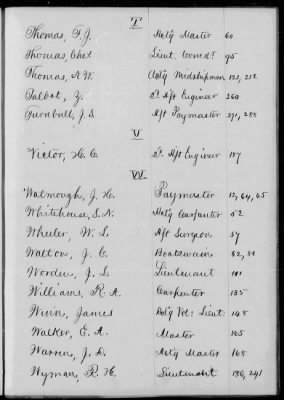 T
Thomas, F. J. Act'g Master 60
Thomas, Chas Lieut. Comd'r 95
Thomas, N. W. Act'g Midshipman 121, 212
Talbot, Z. 2d. Ass't Engineer 260
Turnbull, J. S. Ass't Paymaster 271, 288
V
Victor, H. C. 2d. Ass't Engineer 187
W
Watmough, J. H. Paymaster 12, 64, 65
Whitehouse, S. N. Act'g Carpenter 52
Wheeler, W. L. Ass't Surgeon 57
Walton, J. C. Boatswain 62, 80
Worden, J. L. Lieutenant 101
Williams, R. A. Carpenter 135
Winn, James Act'g Vol: Lieut. 148
Walker, E. A. Master 165
Warren, J. D. Act'g Master 168
Wyman, R. H. Lieutenant 186, 241